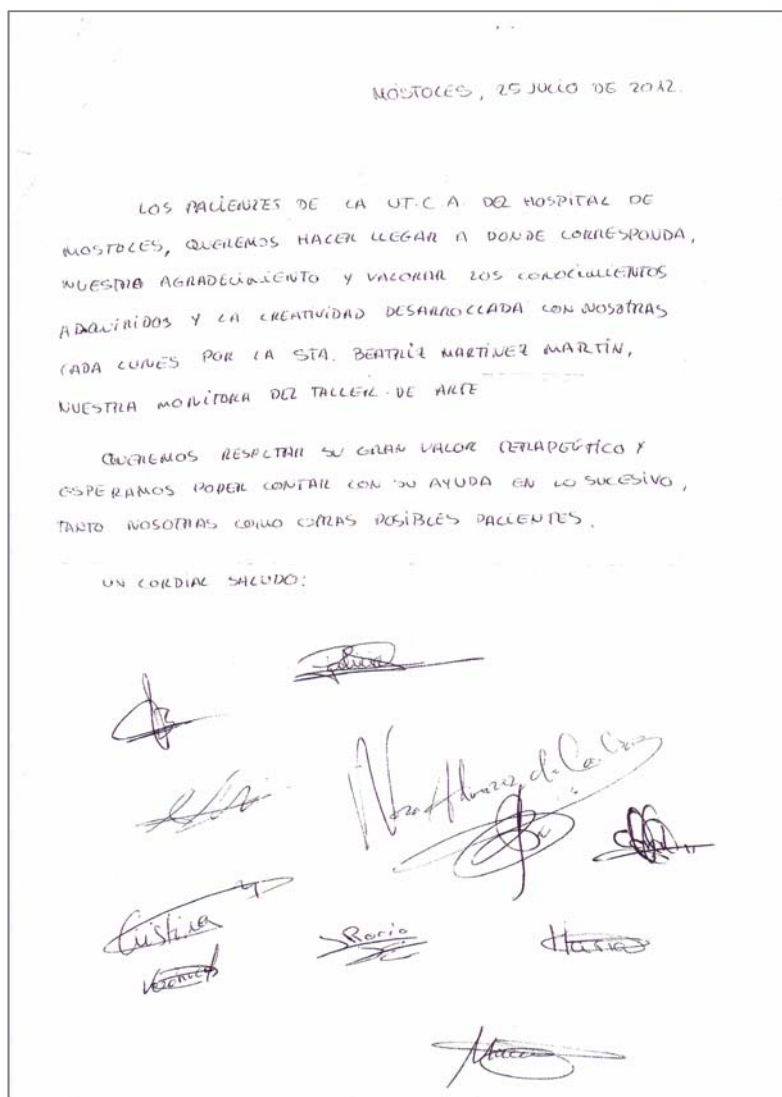 MÓSTOLES, 25 JULIO DE 2012.
LOS PACIENTES DE LA UT.C.A. DEL HOSPITAL DE
MOSTOLES, QUEREMOS HACER LLEGAR A DONDE CORRESPONDA,
NUESTRO AGRADECIMIENTO Y VALORAR LOS CONOCIMIENTOS
ADQUIRIDOS Y LA CREATIVIDAD DESARROLLADA CON NOSOTRAS
CADA LUNES POR LA STA. BEATRIZ MARTÍNEZ MARTÍN,
NUESTRA MONITORA DEL TALLER DE ARTE
QUEREMOS RESALTAR SU GRAN VALOR TERAPEÚTICO Y
ESPERAMOS PODER CONTAR CON SU AYUDA EN LO SUCESIVO,
TANTO NOSOTRAS COMO OTRAS POSIBLES PACIENTES.
UN CORDIAL SALUDO:
Nora Alvarez de la Cruz
Cristina
Rocio
Maria